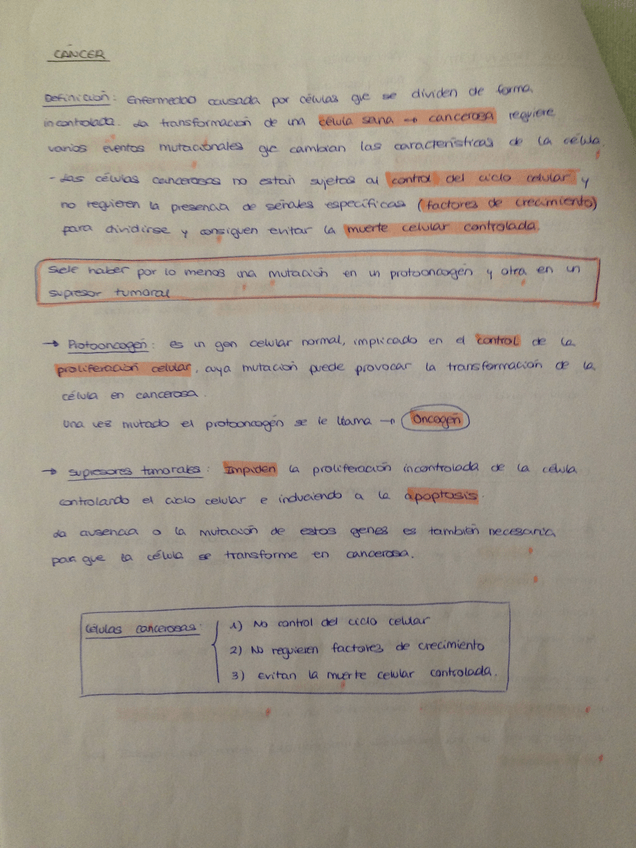 CÁNCER
Definición: Enfermedad causada por células que se dividen de forma
incontrolada. La transformación de una célula sana → cancerosa requiere
varios eventos mutacionales que cambian las características de la célula.
- Las células cancerosas no están sujetas al control del ciclo celular y
no requieren la presencia de señales específicas (factores de crecimiento)
para dividirse y consiguen evitar la muerte celular controlada.
Suele haber por lo menos una mutación en un protooncogén y otra en un
supresor tumoral
→ Protooncogén: es un gen celular normal, implicado en el control de la
proliferación celular, cuya mutación puede provocar la transformación de la
célula en cancerosa.
Una ves mutado el protooncogén se le llama → Oncogén
→ Supresores tumorales: Impiden la proliferación incontrolada de la célula
controlando el ciclo celular e induciendo a la apoptosis.
La ausencia o la mutación de estos genes es también necesaria
para que la célula se transforme en cancerosa.
Células cancerosas:
1) No control del ciclo celular
2) No requieren factores de crecimiento
3) evitan la muerte celular controlada.